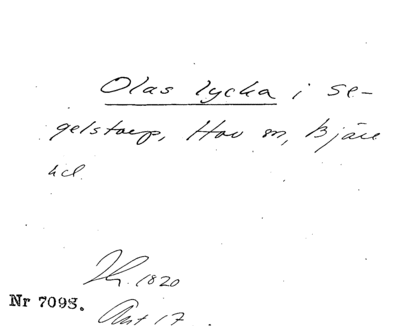 Olas lycka i Se-
gelstorp, Hov sn, Bjäre
hd
1820
Nr 7093.
Akt 17.